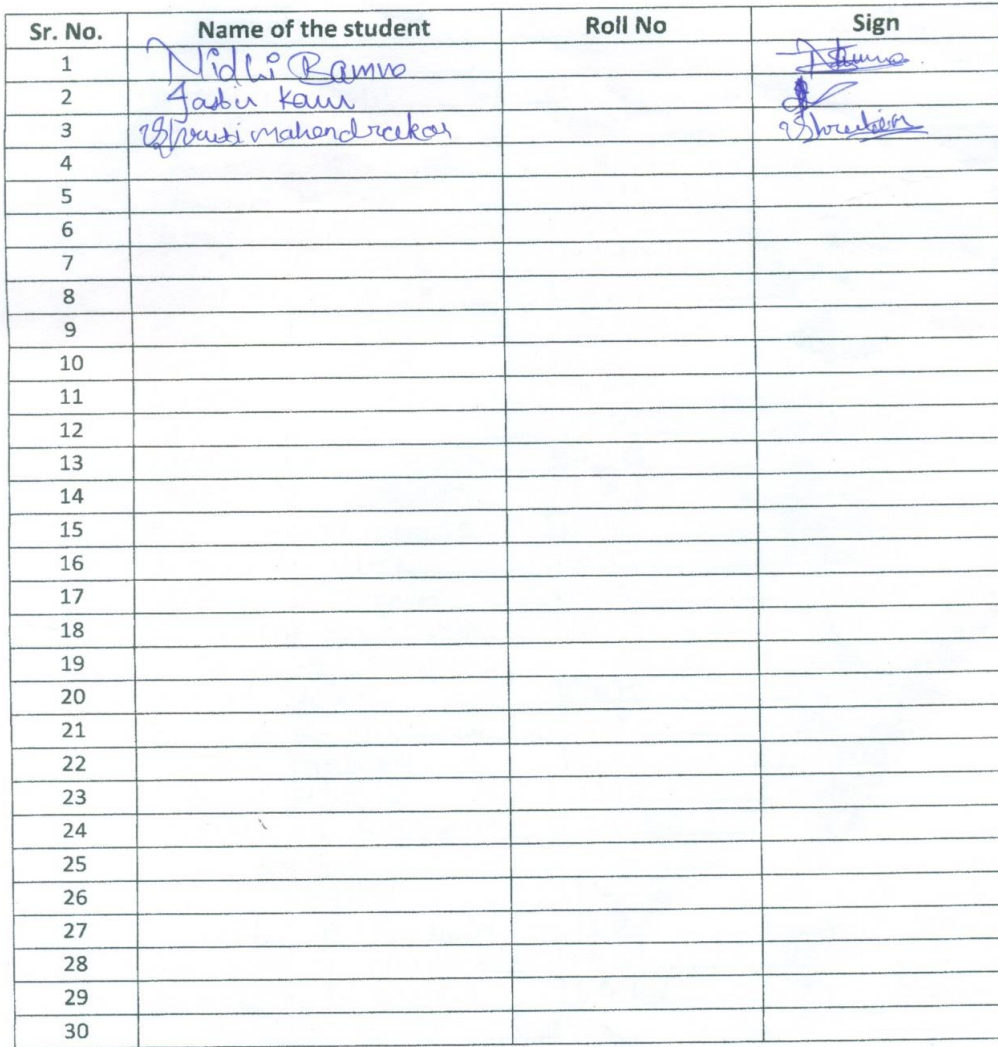 Sr. No. Name of the student Roll No Sign
1 Nidhi Bamno
2 Jasbir Kaur
3 Shruti Mahendrakar
4
5
6
7
8
9
10
11
12
13
14
15
16
17
18
19
20
21
22
23
24
25
26
27
28
29
30